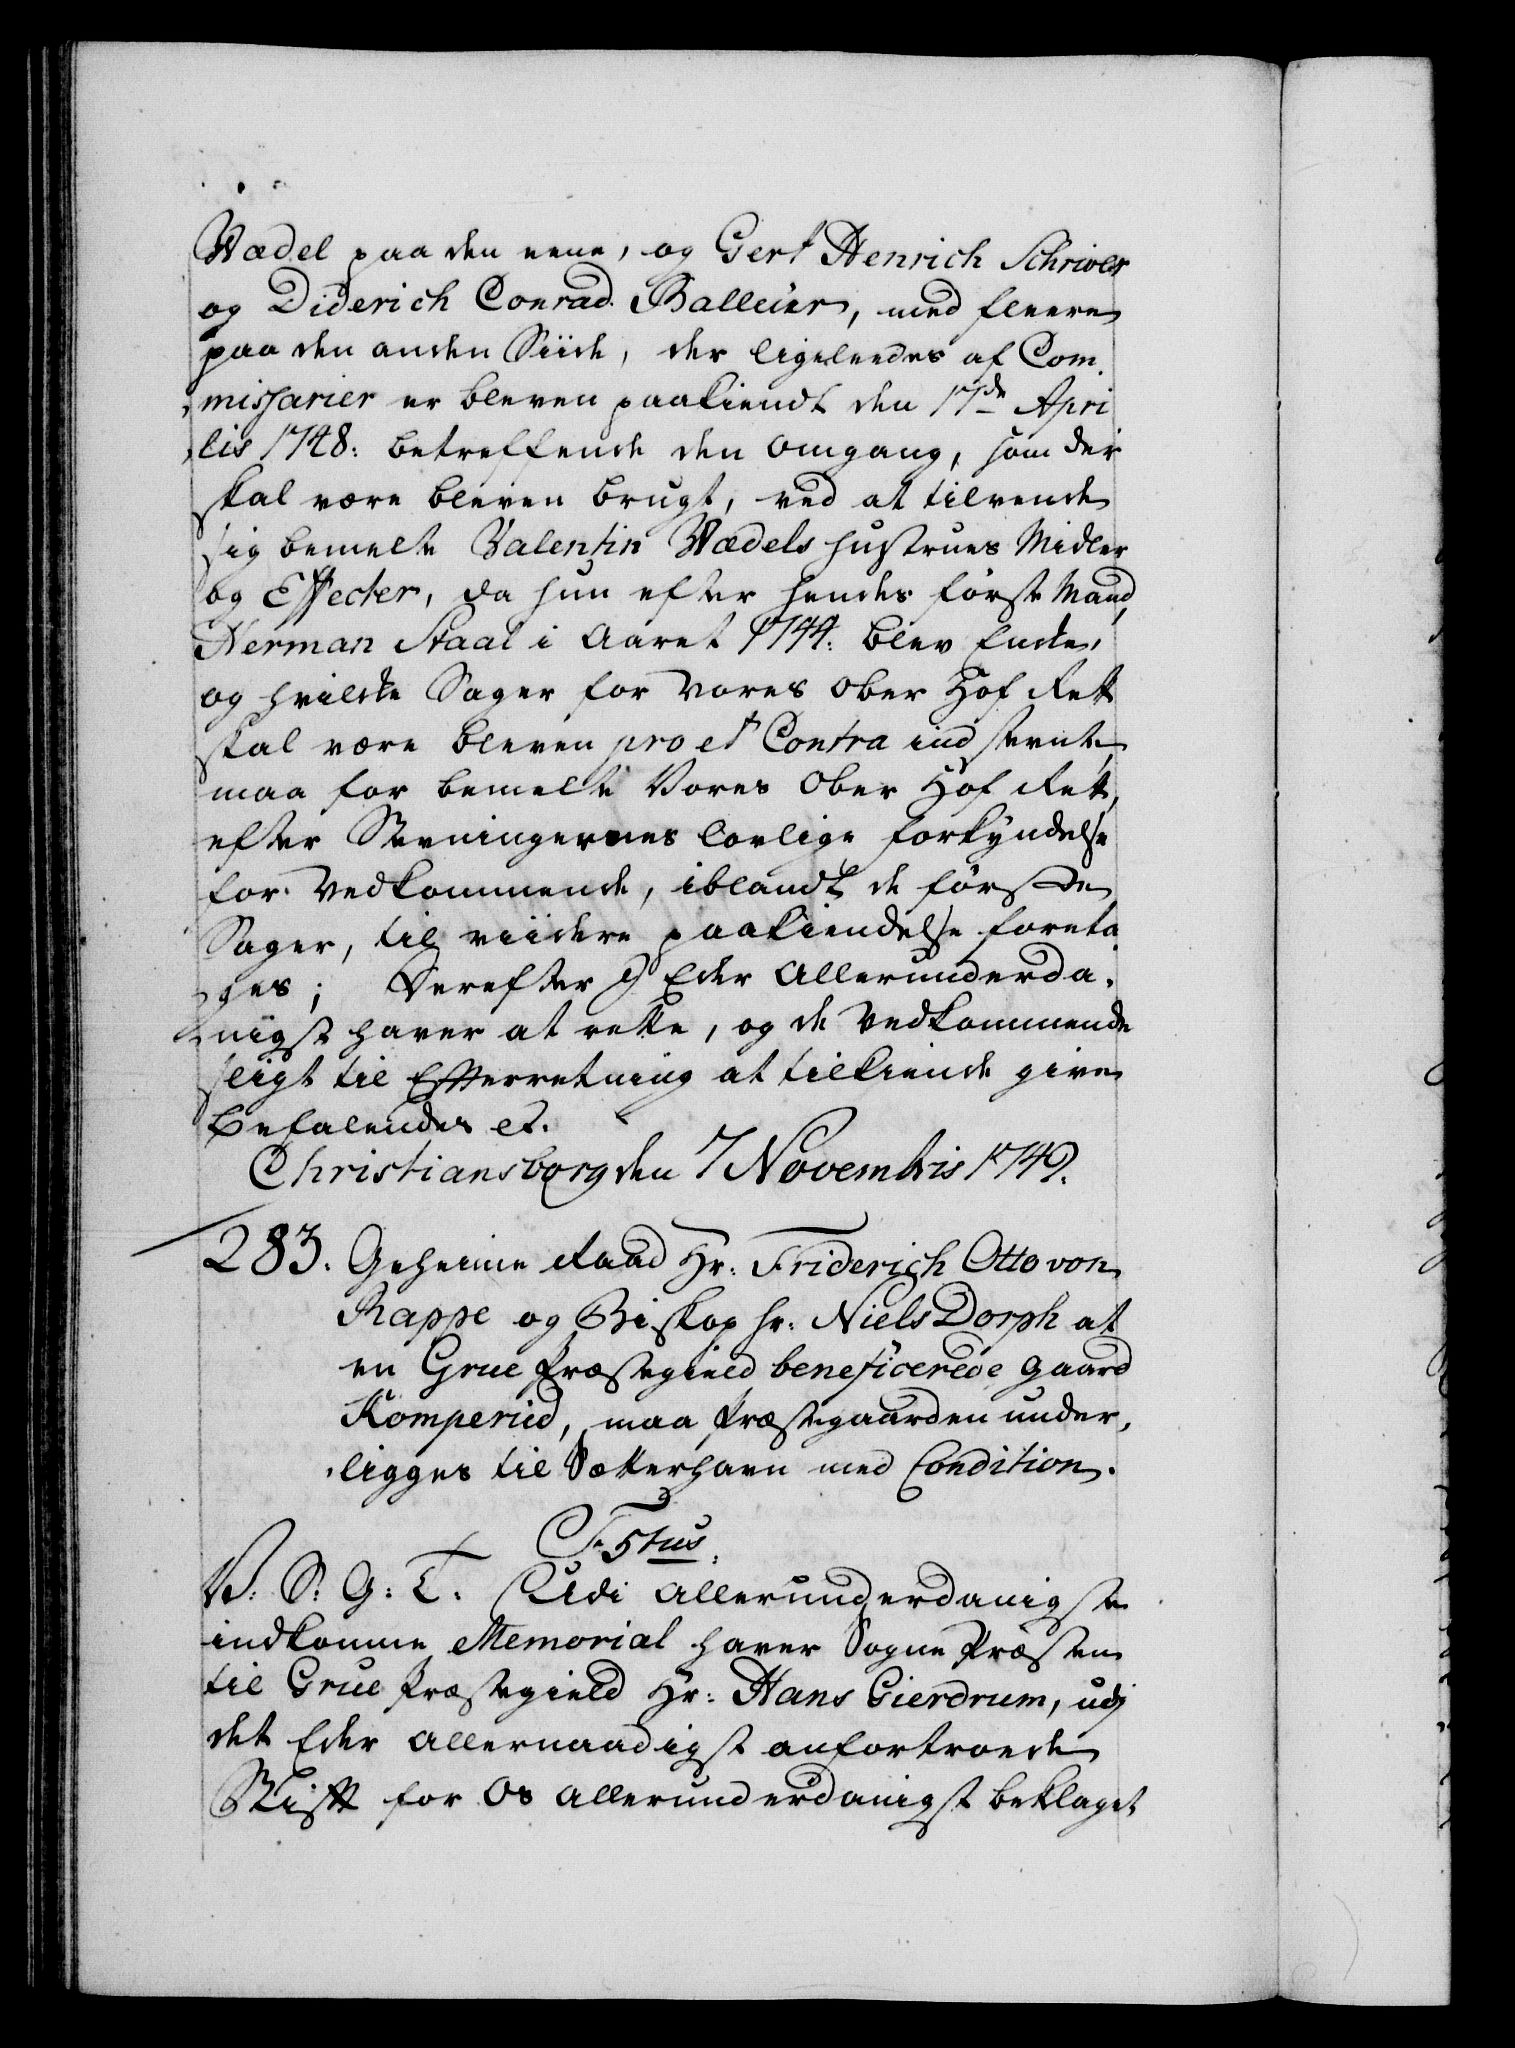 Wædel paa den eene, og Gert Henrich Schriver
og Diderich Conrad Balleür, med fleere
paa den anden Siide, der ligeleedes af Com¬
missarier er bleven paakiendt den 17de Apri¬
lis 1748: betreffende den Omgang, som der
skal være bleven brugt, ved at tilvende
sig bemelte Valentin Wædels Hustrues Midler
og Effecter, da hun efter hendes første Mand,
Herman Staal i Aaret 1744: blev Encke,
og hvilcke Sager for Vores Ober Hof Rett
skal være bleven pro et Contra ind stevnte,
maa for bemelte Vores Ober Hof Ret,
efter Stevningernes lovlige Forkyndelse
for Vedkommende, iblandt de første
Sager, til viidere paakiendelse foreta¬
ges; Derefter I Eder Allerunderda¬
nigst haver at rette, og de Vedkommende
sligt til Efterretning at tilkiende give
Befalendes etc.
Christiansborg den 7 Novembris 1749.
283. Geheime Raad Hr: Friderich Otto von
Rappe og Biskop Hr: Niels Dorph at
en Grue Præstegield beneficerede Gaard
Komperud, maa Præstegaarden under¬
ligges til Sætterhavn med Condition.
F. 5tus.
V. S. G. T. Udi Allerunderdanigste
indkomme Memorial haver Sogne Præsten
til Grue Præstegield Hr: Hans Gierdrum, udj
det Eder Allernaadigst anfortroede
Stift for Os Allerunderdanigst beklaget